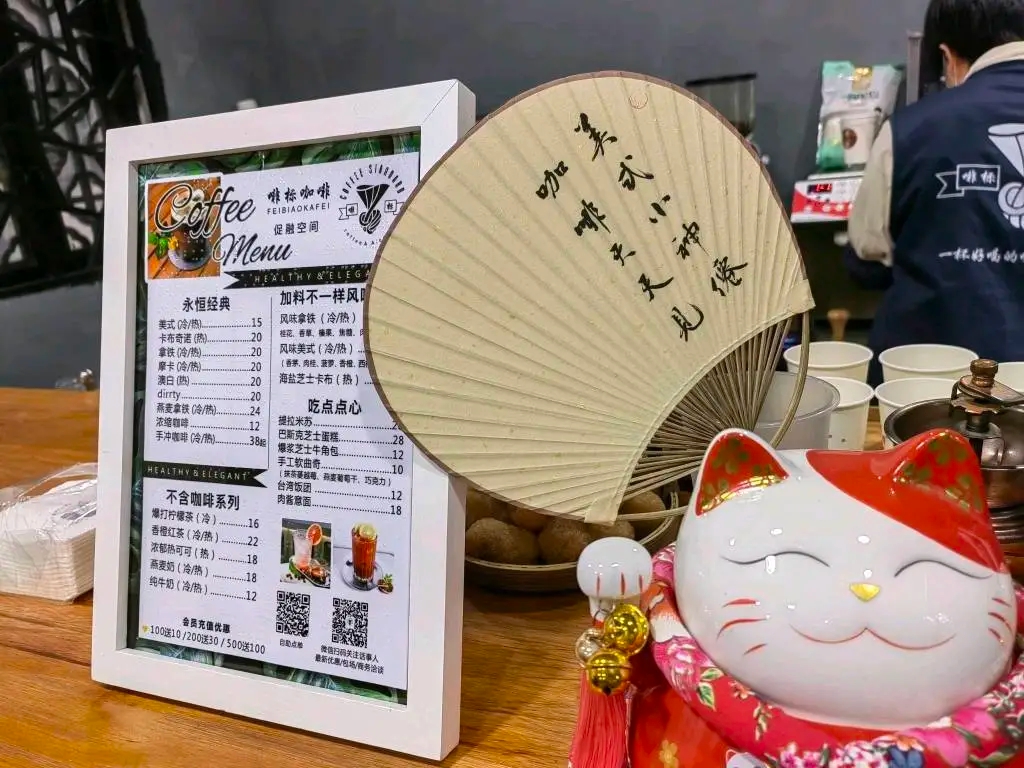 Coffee
Menu
啡标咖啡
FEIBIAOKAFEI
促融空间
COFFEE STANDARD
啡
HEALTHY & ELEGA
永恒经典
美式 (冷/热)..................15
卡布奇诺 (热)..................20
拿铁 (冷/热)..................20
摩卡 (冷/热)..................20
澳白 (热)..................20
dirrty..................20
燕麦拿铁 (冷/热)..................24
浓缩咖啡..................12
手冲咖啡 (冷/热)..................38起
HEALTHY & ELEGANT
不含咖啡系列
爆打柠檬茶 ( 冷 )..........16
香橙红茶 ( 冷/热 )..........22
浓郁热可可 ( 热 )..........18
燕麦奶 ( 冷/热 )..........18
纯牛奶 ( 冷/热 )..........12
会员充值优惠
100送10 / 200送30 / 500送100
加料不一样风
风味拿铁 ( 冷/热 )
桂花、香草、榛果、焦糖、
风味美式 ( 冷/热 )
( 香茅、肉桂、菠萝、香橙、
海盐芝士卡布 ( 热 )
吃点点心
提拉米苏
巴斯克芝士蛋糕..........28
爆浆芝士牛角包..........12
手工软曲奇..........10
( 抹茶蔓越莓、燕麦葡萄干、巧克力 )
台湾饭团..........12
肉酱意面..........18
自助点单
微信扫码关注话事人
最新优惠/包场/商务洽谈
美式小神倦
咖啡天天见
啡标
一杯好喝的